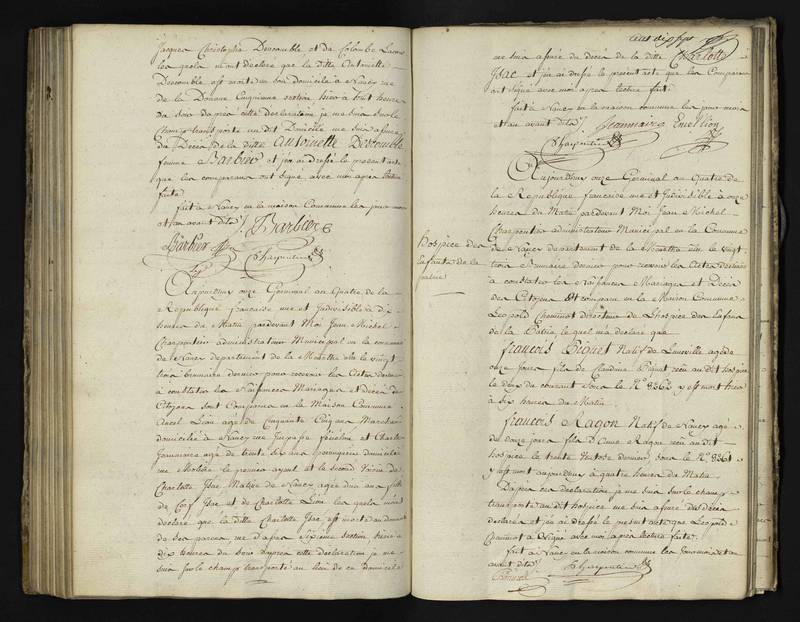 Jacques Christophe Descouble et de Colombe
les quels m'ont declaré que la ditte Antoinette
Descouble est morte en son domicile à Nancy rue
de la Douane Cinquieme section hier à huit heures
du soir D'apres cette declaration je me suis sur le
Champ transporté au dit Domicile me suis assuré
du Décès de la ditte Antoinette Descouble
femme Barbier et j'en ai dressé le present acte
que les comparans ont signé avec moi apres lecture
faite
fait à Nancy en la maison Commune les jour mois
et an avant dits
Barbier
Barbier Charpentier
Aujourd'huy onze Germinal an Quatre de la
Republique française une et Indivisible à dix
heures du Matin pardevant Moi Jean Michel
Charpentier administrateur Municipal en la commune
de Nancy departement de la Meurthe élu le vingt
trois brumaire dernier pour recevoir les Actes destinés
à constater les Naissances Mariages et décès des
Citoyens sont Comparus en la Maison Commune
Lion agé de Cinquante Cinq ans Marchand
domicilié à Nancy rue et Charles
agé de trente six ans domicilié
rue le premier ayeul et le second Voisin de
Charlotte Isac Native de Nancy agée d'un an fille
de Isac et de Charlotte Lion les quels m'ont
declaré que la ditte Charlotte Isac est morte au domicile
de ses pere et mere Sixieme section hier à
dix heures du soir D'apres cette declaration je me
suis sur le champ transporté au lieu de ce domicile
cent dix sept
me suis assuré du décès de la ditte Charlotte
Isac et j'en ai dressé le present acte que les Comparans
ont signé avec moi apres lecture faite
fait à Nancy en la maison commune les jour mois
et an avant dits
Charpentier
Aujourd'huy onze Germinal an Quatre de
la Republique française une et Indivisible à onze
heures du Matin pardevant Moi Jean Michel
Charpentier administrateur Municipal en la Commune
de Nancy departement de la Meurthe élu le vingt
trois Brumaire dernier pour recevoir les Actes destinés
à constater les Naissances Mariages et Décès
des Citoyens Est comparu en la Maison Commune
Leopold directeur de L'hospice des Enfans
de la Patrie le quel m'a declaré que
hospice des
enfants de la
patrie
françois Piquet Natif de Luneville agé de
onze jours fils de Claudine Piquet reçu au dit hospice
le deux du courant sous le No. 8362 y est mort hier
à six heures du Matin
françois Ragon Natif de Nancy agé
de douze jours fils d'Anne Ragon reçu au dit
hospice le trente Ventose dernier sous le No. 8361
y est mort aujourd'huy à quatre heures du Matin
D'apres ces declarations je me suis sur le champ
transporté au dit hospice me suis assuré du décès
declarés et j'en ai dressé le present acte que Leopold
a signé avec moi apres lecture faite
fait à Nancy en la maison commune les jour mois et an
avant dits
Charpentier